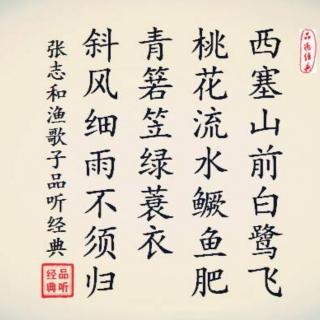 西塞山前白鹭飞
桃花流水鳜鱼肥
青箬笠绿蓑衣
斜风细雨不须归
张志和渔歌子品听经典
品听
经典